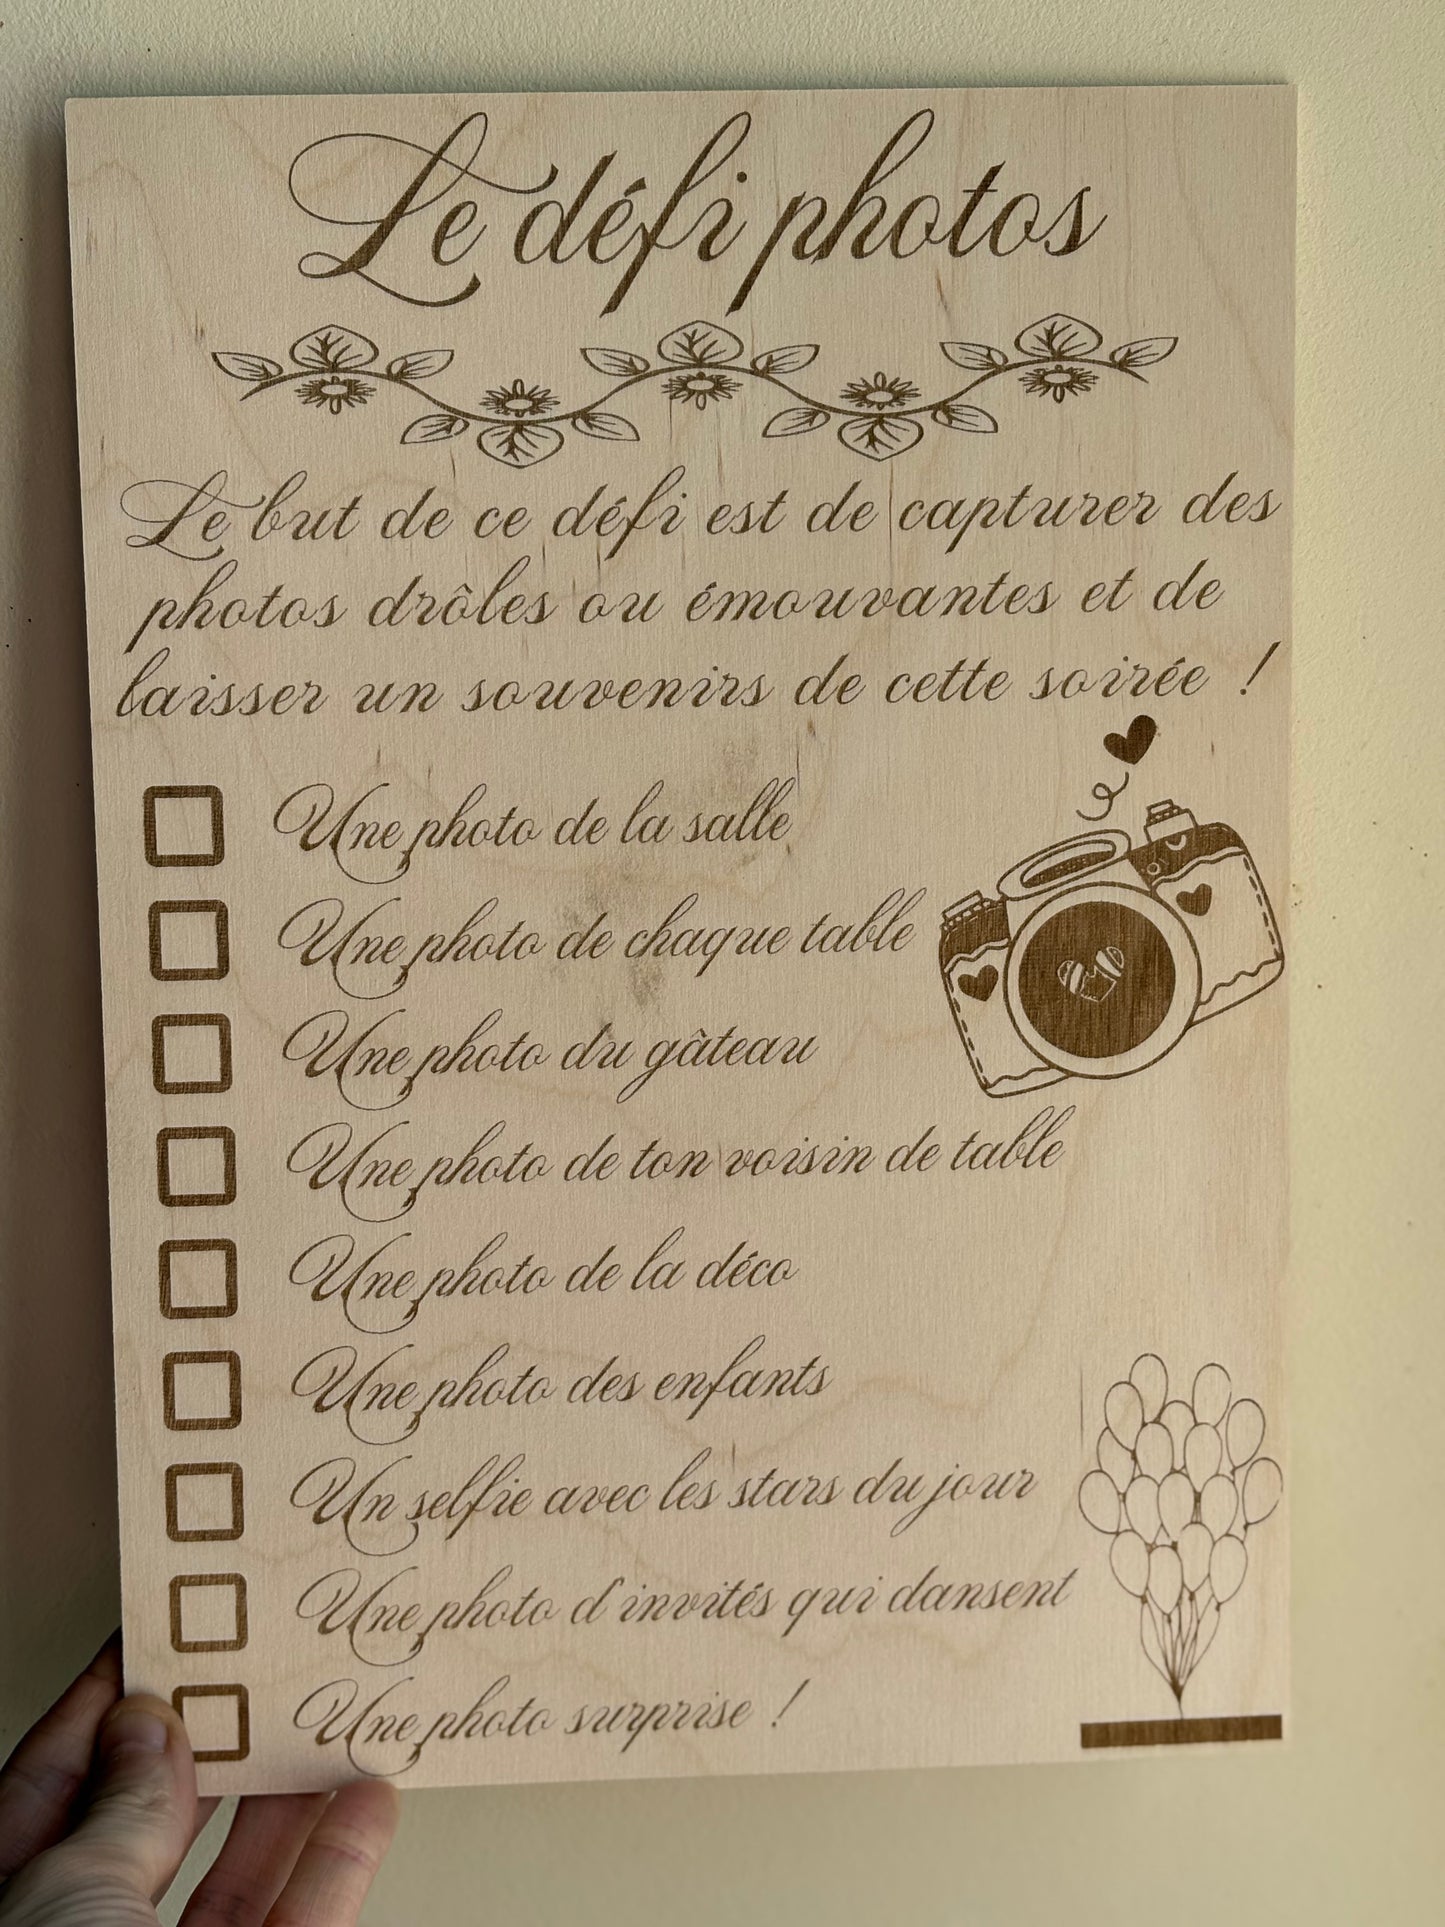 Le défi photos
Le but de ce défi est de capturer des
photos drôles ou émouvantes et de
laisser un souvenirs de cette soirée !
Une photo de la salle
Une photo de chaque table
Une photo du gâteau
Une photo de ton voisin de table
Une photo de la déco
Une photo des enfants
Un selfie avec les stars du jour
Une photo d'invités qui dansent
Une photo surprise !